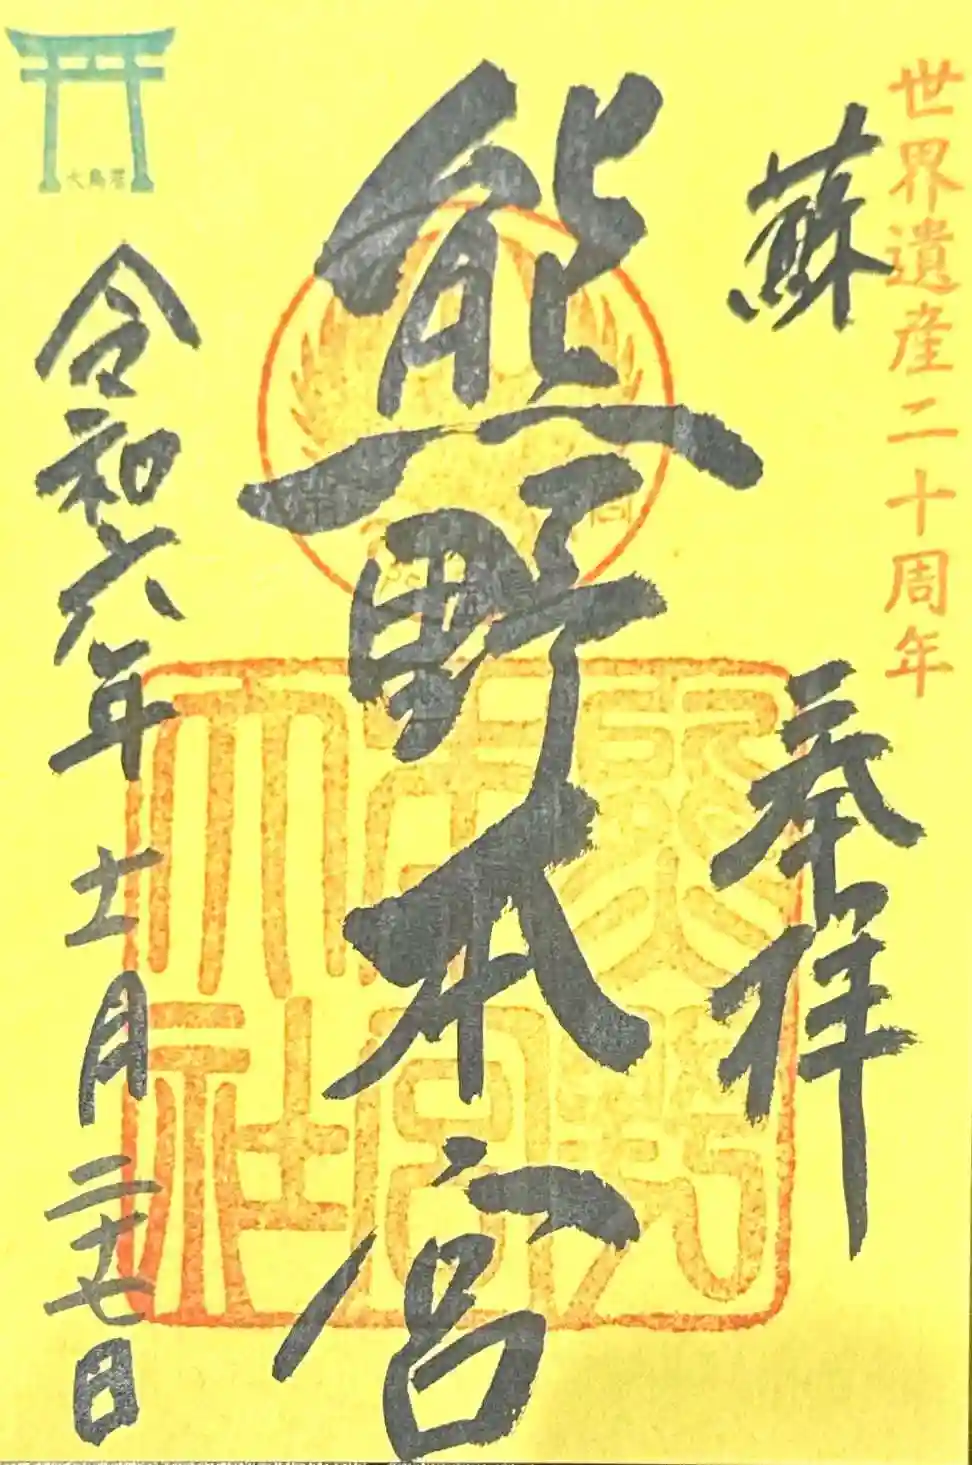 世界遺産二十周年
蘇
奉拝
熊野本宮
大鳥居
令和六年十一月二十七日